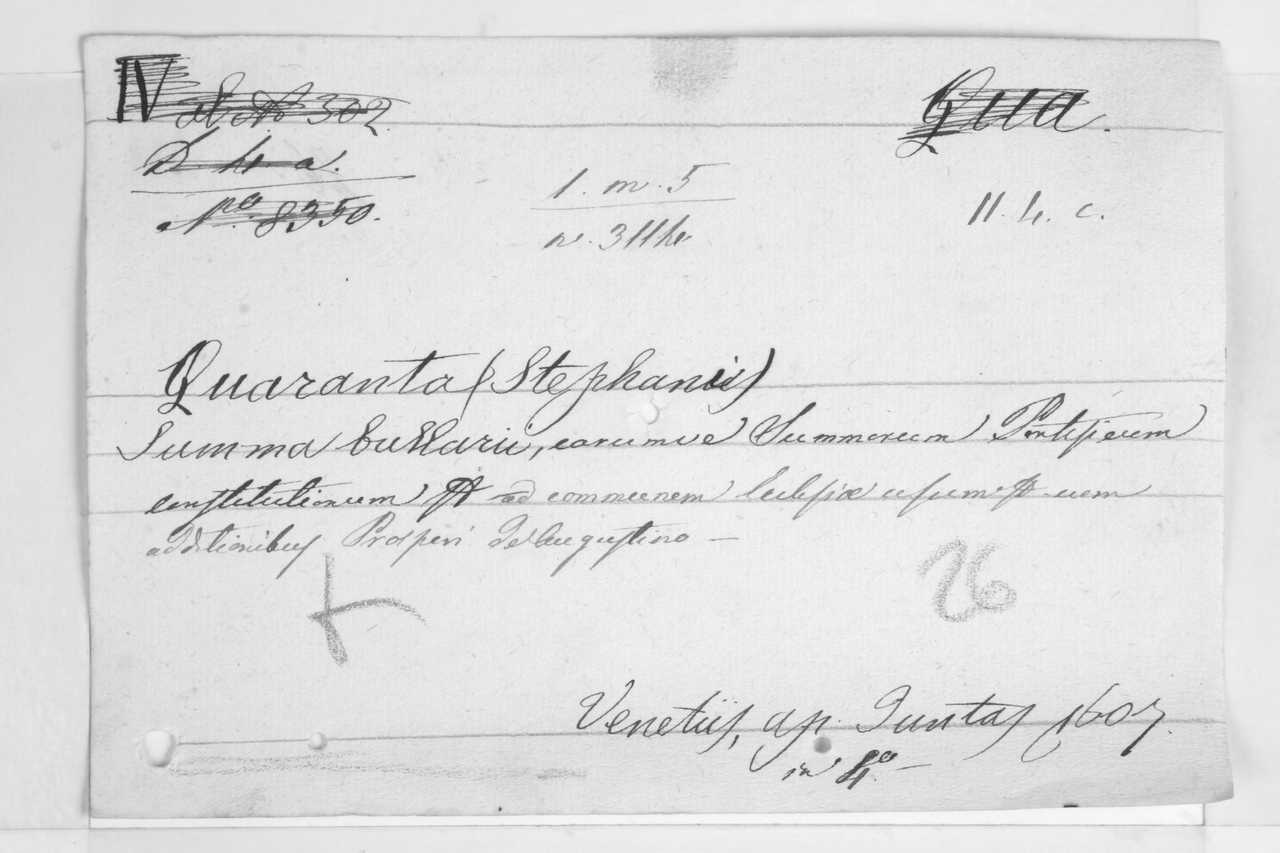 IV 302
D 4 a.
Nro. 8350.
Qua.
1. m. 5
n. 3114
11. 4. c.
Quaranta (Stephanus)
Summa bullarii, earumve Summorum Pontificum
constitutionum ad communem Eclesiæ usum cum
additionibus Prosperi De Augustino —
26
Venetiis, ap. Juntas 1607.
in 4o —